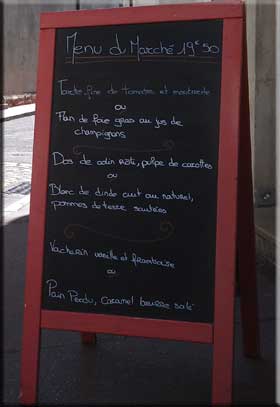 Menu du Marché 19€50
Tarte fine de tomates et moutarde
ou
Flan de foie gras au jus de
champignons
Dos de colin rôti, pulpe de carottes
ou
Blanc de dinde cuit au naturel,
pommes de terre sautées
Vacherin vanille et framboise
ou
Pain Perdu, Caramel beurre salé